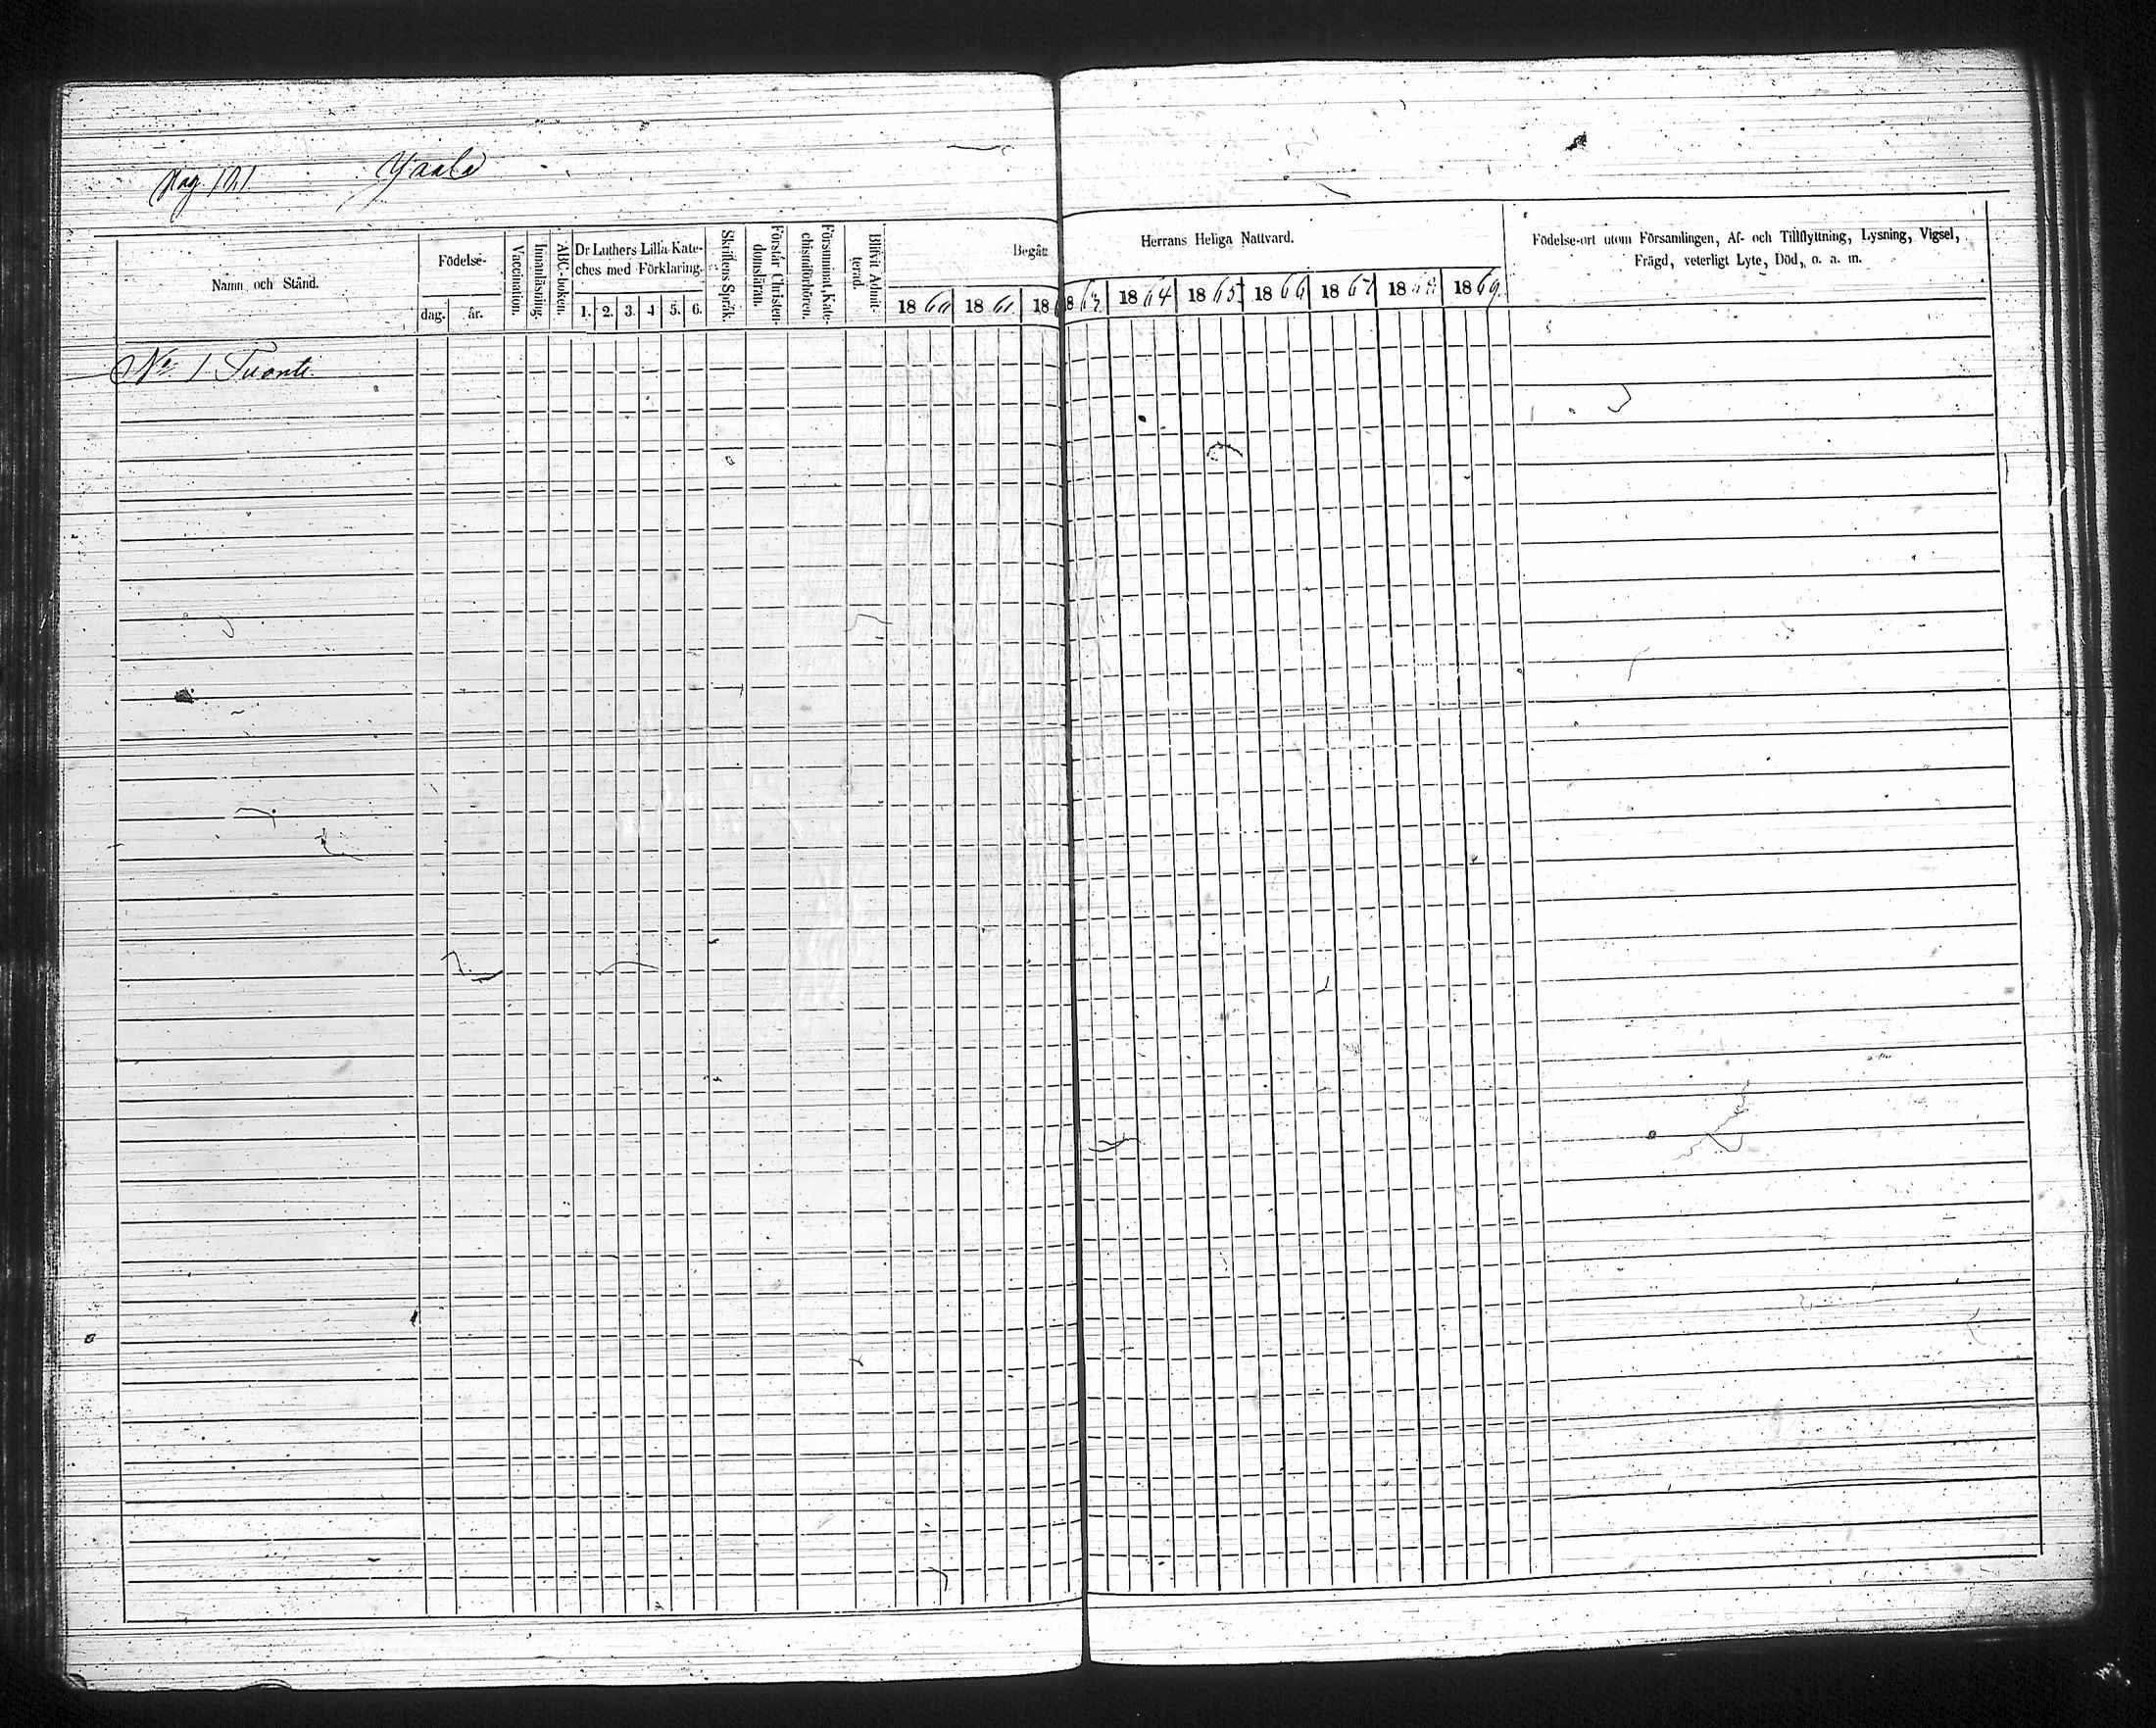 Pag. 121. Yaala
Namn och Stånd.
Födelse-
dag. år.
Vaccination.
Innanläsning.
ABC-boken.
Dr Luthers Lilla Kate-
ches med Förklaring.
1. 2. 3. 4. 5. 6.
Skriftens Språk.
Förstår Christen-
domsläran.
Försummat Kate-
chismiförhören.
Blifvit Admit-
terad.
Begått Herrans Heliga Nattvard.
1860 1861 186 63. 1864 1865 1866 1867 1868 1869.
Födelse-ort utom Församlingen, Af- och Tillflyttning, Lysning, Vigsel,
Frägd, veterligt Lyte, Död, o. a. m.
No 1